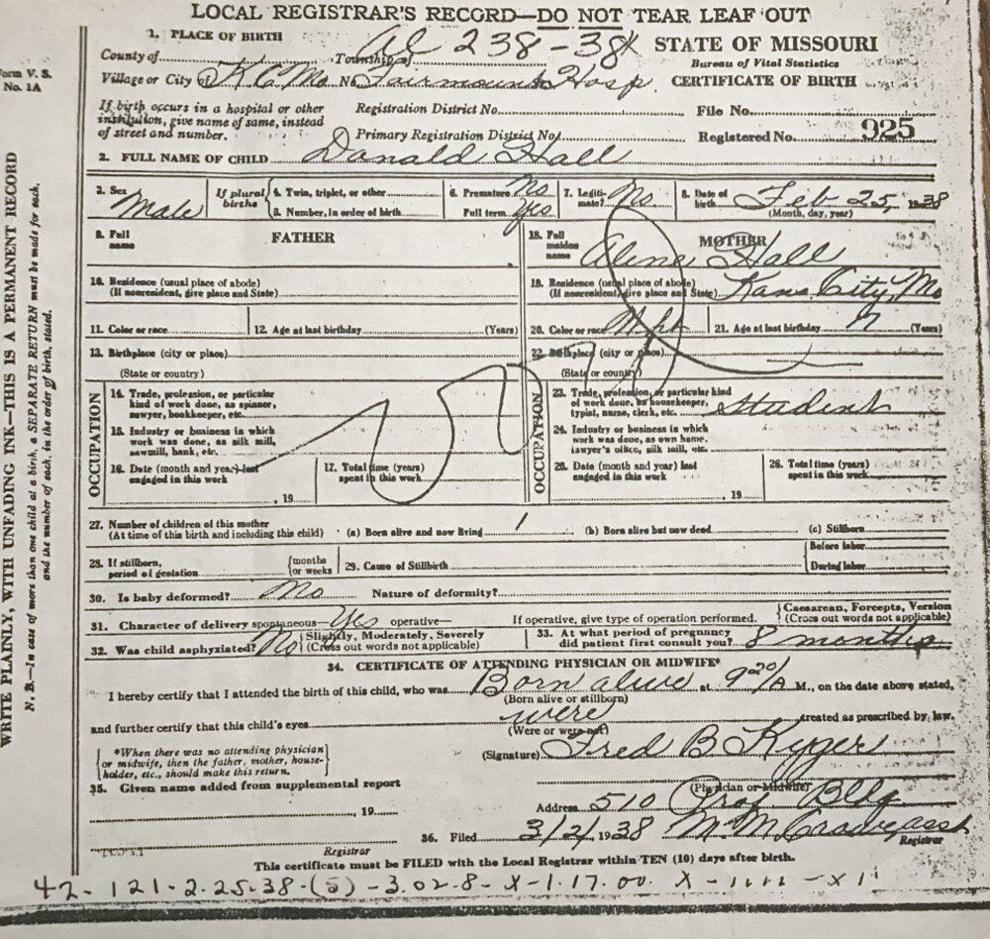 LOCAL REGISTRAR'S RECORD—DO NOT TEAR LEAF OUT
1. PLACE OF BIRTH
County of Township of 238-38
STATE OF MISSOURI
Bureau of Vital Statistics
CERTIFICATE OF BIRTH
Village or City of K C Mo No. Fairmount Hosp.
If birth occurs in a hospital or other institution, give name of same, instead of street and number.
Registration District No. File No.
Primary Registration District No. Registered No. 925
2. FULL NAME OF CHILD Donald Hall
3. Sex Male
If plural births
4. Twin, triplet, or other
5. Number, in order of birth
6. Premature No
Full term Yes
7. Legitimate? No
8. Date of birth Feb 25, 1938
(Month, day, year)
9. Full name FATHER
10. Residence (usual place of abode)
(If nonresident, give place and State)
11. Color or race 12. Age at last birthday (Years)
13. Birthplace (city or place)
(State or country)
OCCUPATION
14. Trade, profession, or particular kind of work done, as spinner, sawyer, bookkeeper, etc.
15. Industry or business in which work was done, as silk mill, sawmill, bank, etc.
16. Date (month and year) last engaged in this work , 19
17. Total time (years) spent in this work
18. Full maiden name MOTHER
Hall
19. Residence (usual place of abode)
(If nonresident, give place and State) Kans City, Mo
20. Color or race 21. Age at last birthday (Years)
22. Birthplace (city or place)
(State or country)
OCCUPATION
23. Trade, profession, or particular kind of work done, as housekeeper, typist, nurse, clerk, etc. Student
24. Industry or business in which work was done, as own home, lawyer's office, silk mill, etc.
25. Date (month and year) last engaged in this work , 19
26. Total time (years) spent in this work
27. Number of children of this mother
(At time of this birth and including this child) (a) Born alive and now living 1 (b) Born alive but now dead (c) Stillborn
28. If stillborn, period of gestation months or weeks 29. Cause of Stillbirth Before labor During labor
30. Is baby deformed? No Nature of deformity?
31. Character of delivery spontaneous— Yes operative— If operative, give type of operation performed. Caesarean, Forcepts, Version (Cross out words not applicable)
32. Was child asphyxiated? No Slightly, Moderately, Severely (Cross out words not applicable) 33. At what period of pregnancy did patient first consult you? 8 months
34. CERTIFICATE OF ATTENDING PHYSICIAN OR MIDWIFE*
I hereby certify that I attended the birth of this child, who was Born alive at 9 20/A M., on the date above stated,
(Born alive or stillborn)
and further certify that this child's eyes were treated as prescribed by law.
(Were or were not)
*When there was no attending physician or midwife, then the father, mother, householder, etc., should make this return.
(Signature) Fred B Kyger
Physician or Midwife
35. Given name added from supplemental report
, 19
Address 510 Prof Bldg
36. Filed 3/2/1938 M M
Registrar
Registrar
This certificate must be FILED with the Local Registrar within TEN (10) days after birth.
42-121-2-25-38-(5)-3.02-8-X-1.17.00.
Form V. S. No. 1A
WRITE PLAINLY, WITH UNFADING INK—THIS IS A PERMANENT RECORD
N. B.—In case of more than one child at a birth, a SEPARATE RETURN must be made for each, and the number of each, in the order of birth, stated.